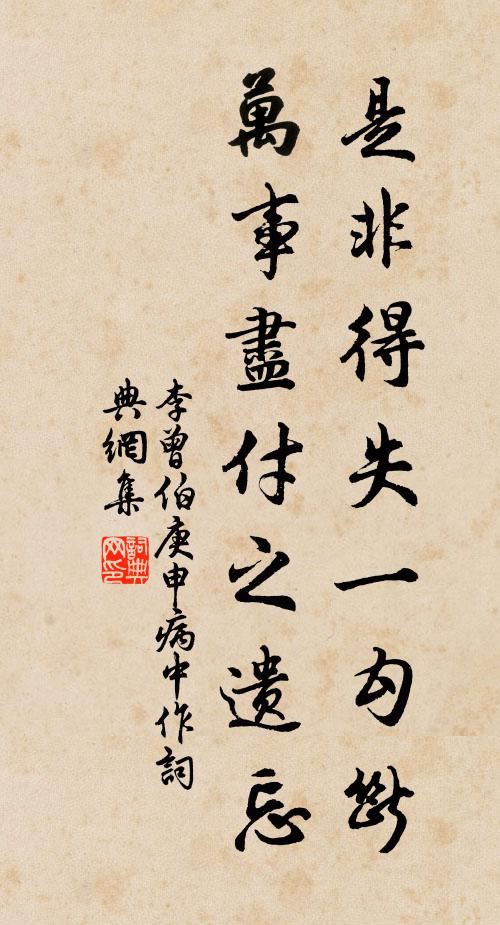 是非得失一勾斷
萬事盡付之遺忘
李曾伯庚申病中作詞
典網集
詞典网印